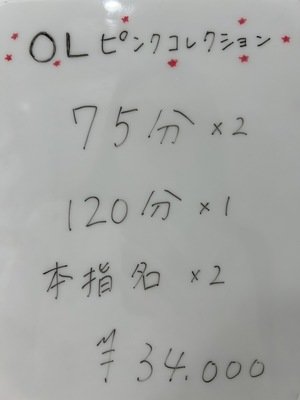 OLピンクコレクション
75分 ×2
120分 ×1
本指名 ×2
¥34.000